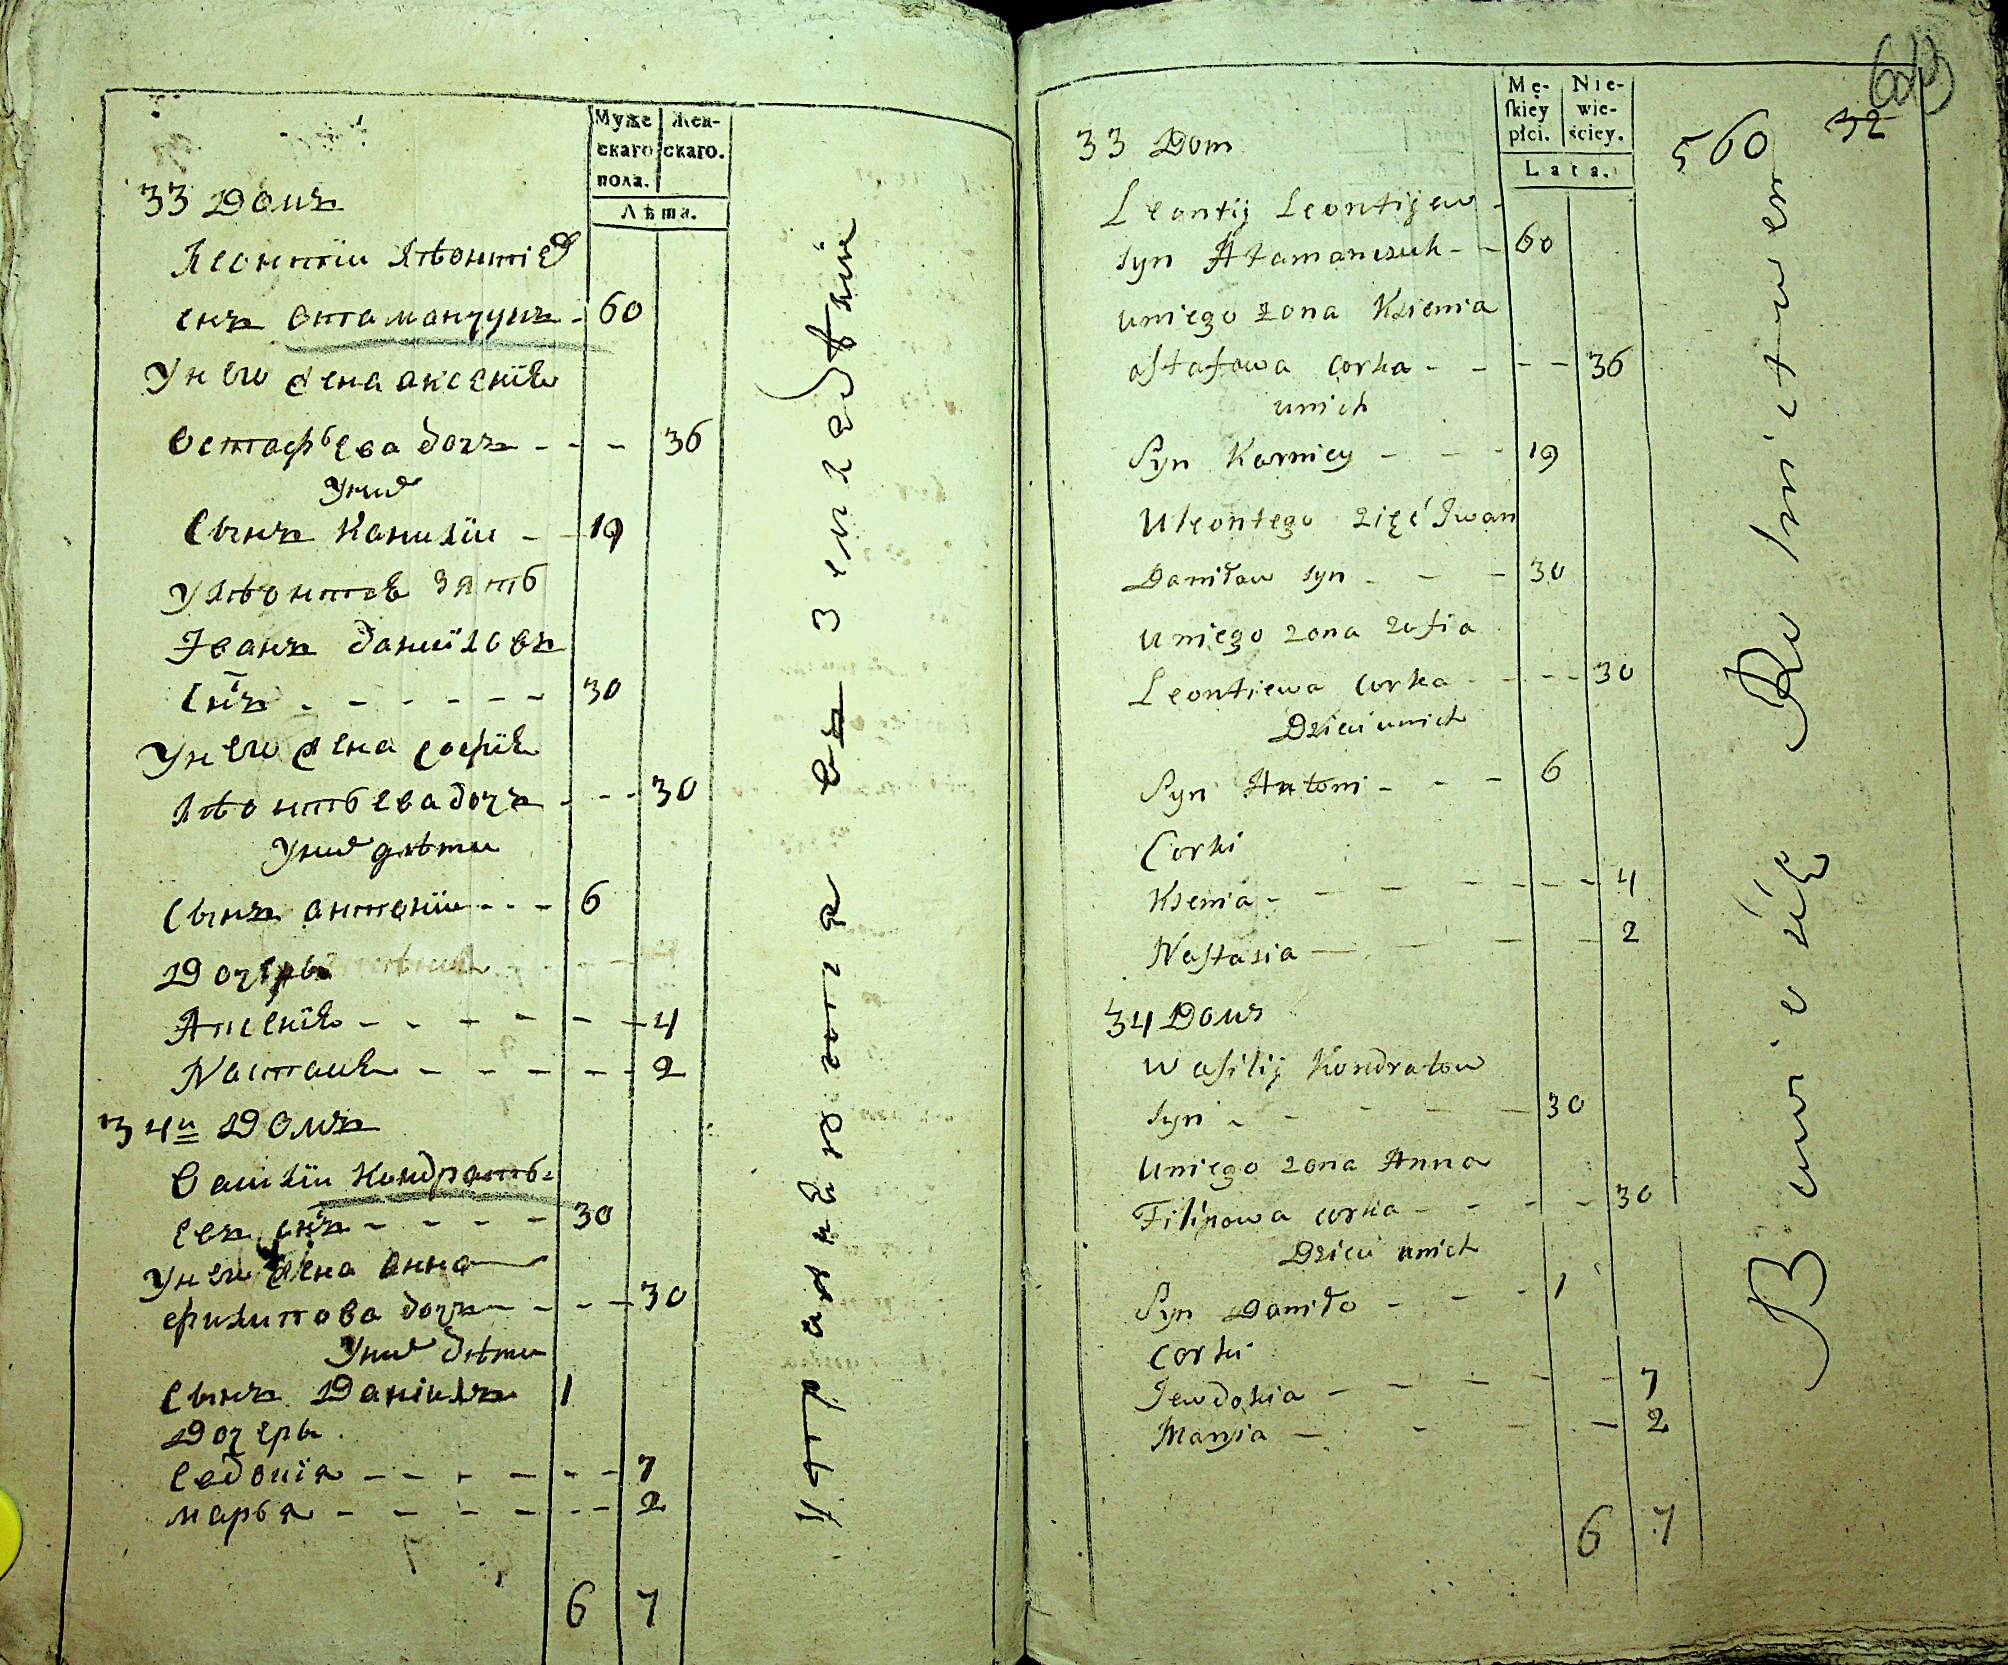 Муже
скаго
пола.
Жен-
скаго.
Лѣта.
33 Домъ
Леонтій Лѣонтіев
снъ Отаманчукъ - 60
У него жена Аксенія
Остафьева дочь - - - 36
У них
Сынъ Кондратій - - 19
У Лѣонтія зять
Іванъ Даниловъ
снъ - - - - - - 30
У него жена Софія
Лѣонтьева дочь - - - 30
У них дѣти
Сынъ Антоній - - - 6
Дочерѣ
Аксенія - - - - - - 4
Настасія - - - - - - 2
34й Домъ
Василій Кондратье-
евъ снъ - - - - 30
У него жена Анна
Филипова дочь - - - - 30
У них дѣти
Сынъ Даніилъ 1
Дочерѣ
Евдокія - - - - - - 7
Марья - - - - - - 2
6 7
занимается въ земледѣлій
Mę-
skiey
płci.
Nie-
wie-
ściey.
Lata.
560 32
33 Dom
Leontij Leontijew -
syn Atamanczuk - - 60
uniego żona Ksienia
ostafowa corka - - - - 36
unich
Syn Karniey - - - 19
Uleontego zięć Iwan
Daniłow syn - - - 30
Uniego zona Zofia
Leontiewa Corka - - - - 30
Dzieci unich
Syn Antoni - - - 6
Corki
Ksenia - - - - - - - 4
Nastasia - - - - 2
34 Домъ
Wasilij Kondratow
syn - - - - - 30
Uniego zona Anna
Filipowa corka - - - - 30
Dzieci unich
Syn Daniło - - - 1
Corki
Jewdokia - - - - - - 7
Marya - - - - 2
6 7
Bawi się Rolnictwem